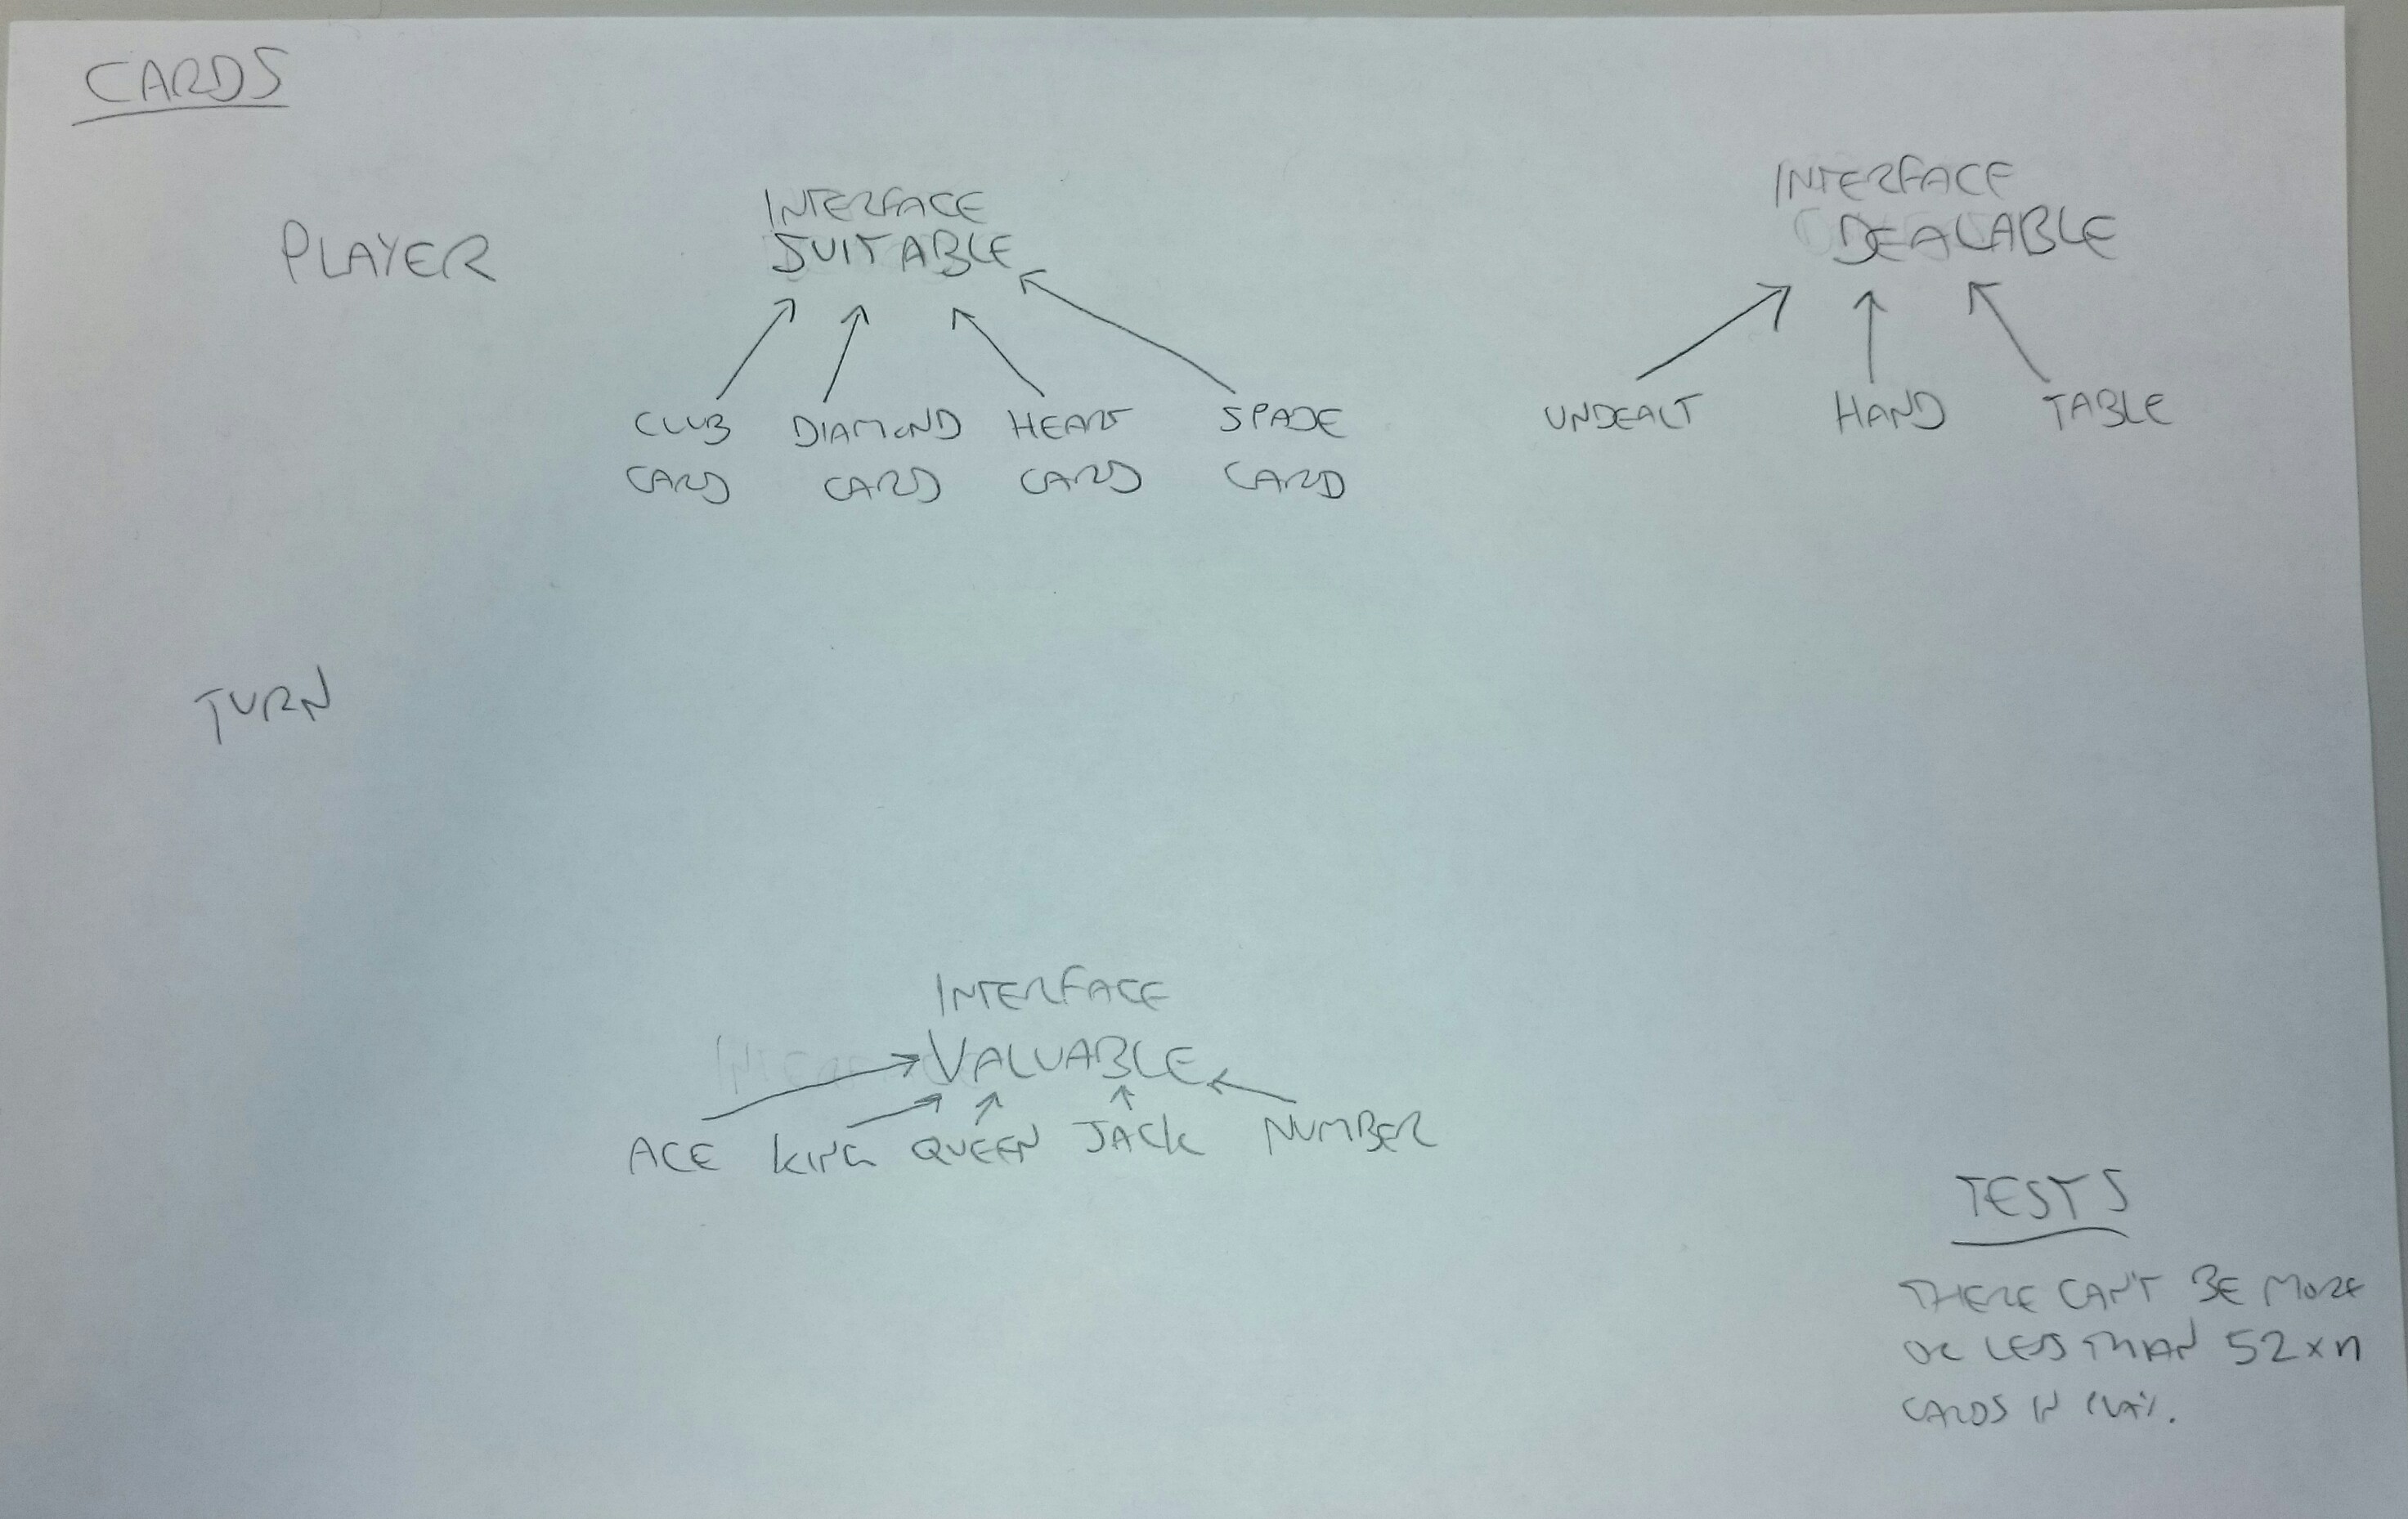 CARDS
PLAYER
INTERFACE
SUITABLE
CLUB DIAMOND HEART SPADE
CARD CARD CARD CARD
INTERFACE
DEALABLE
UNDEALT HAND TABLE
TURN
INTERFACE
VALUABLE
ACE KING QUEEN JACK NUMBER
TESTS
THERE CAN'T BE MORE
OR LESS THAN 52 x n
CARDS IN PLAY.